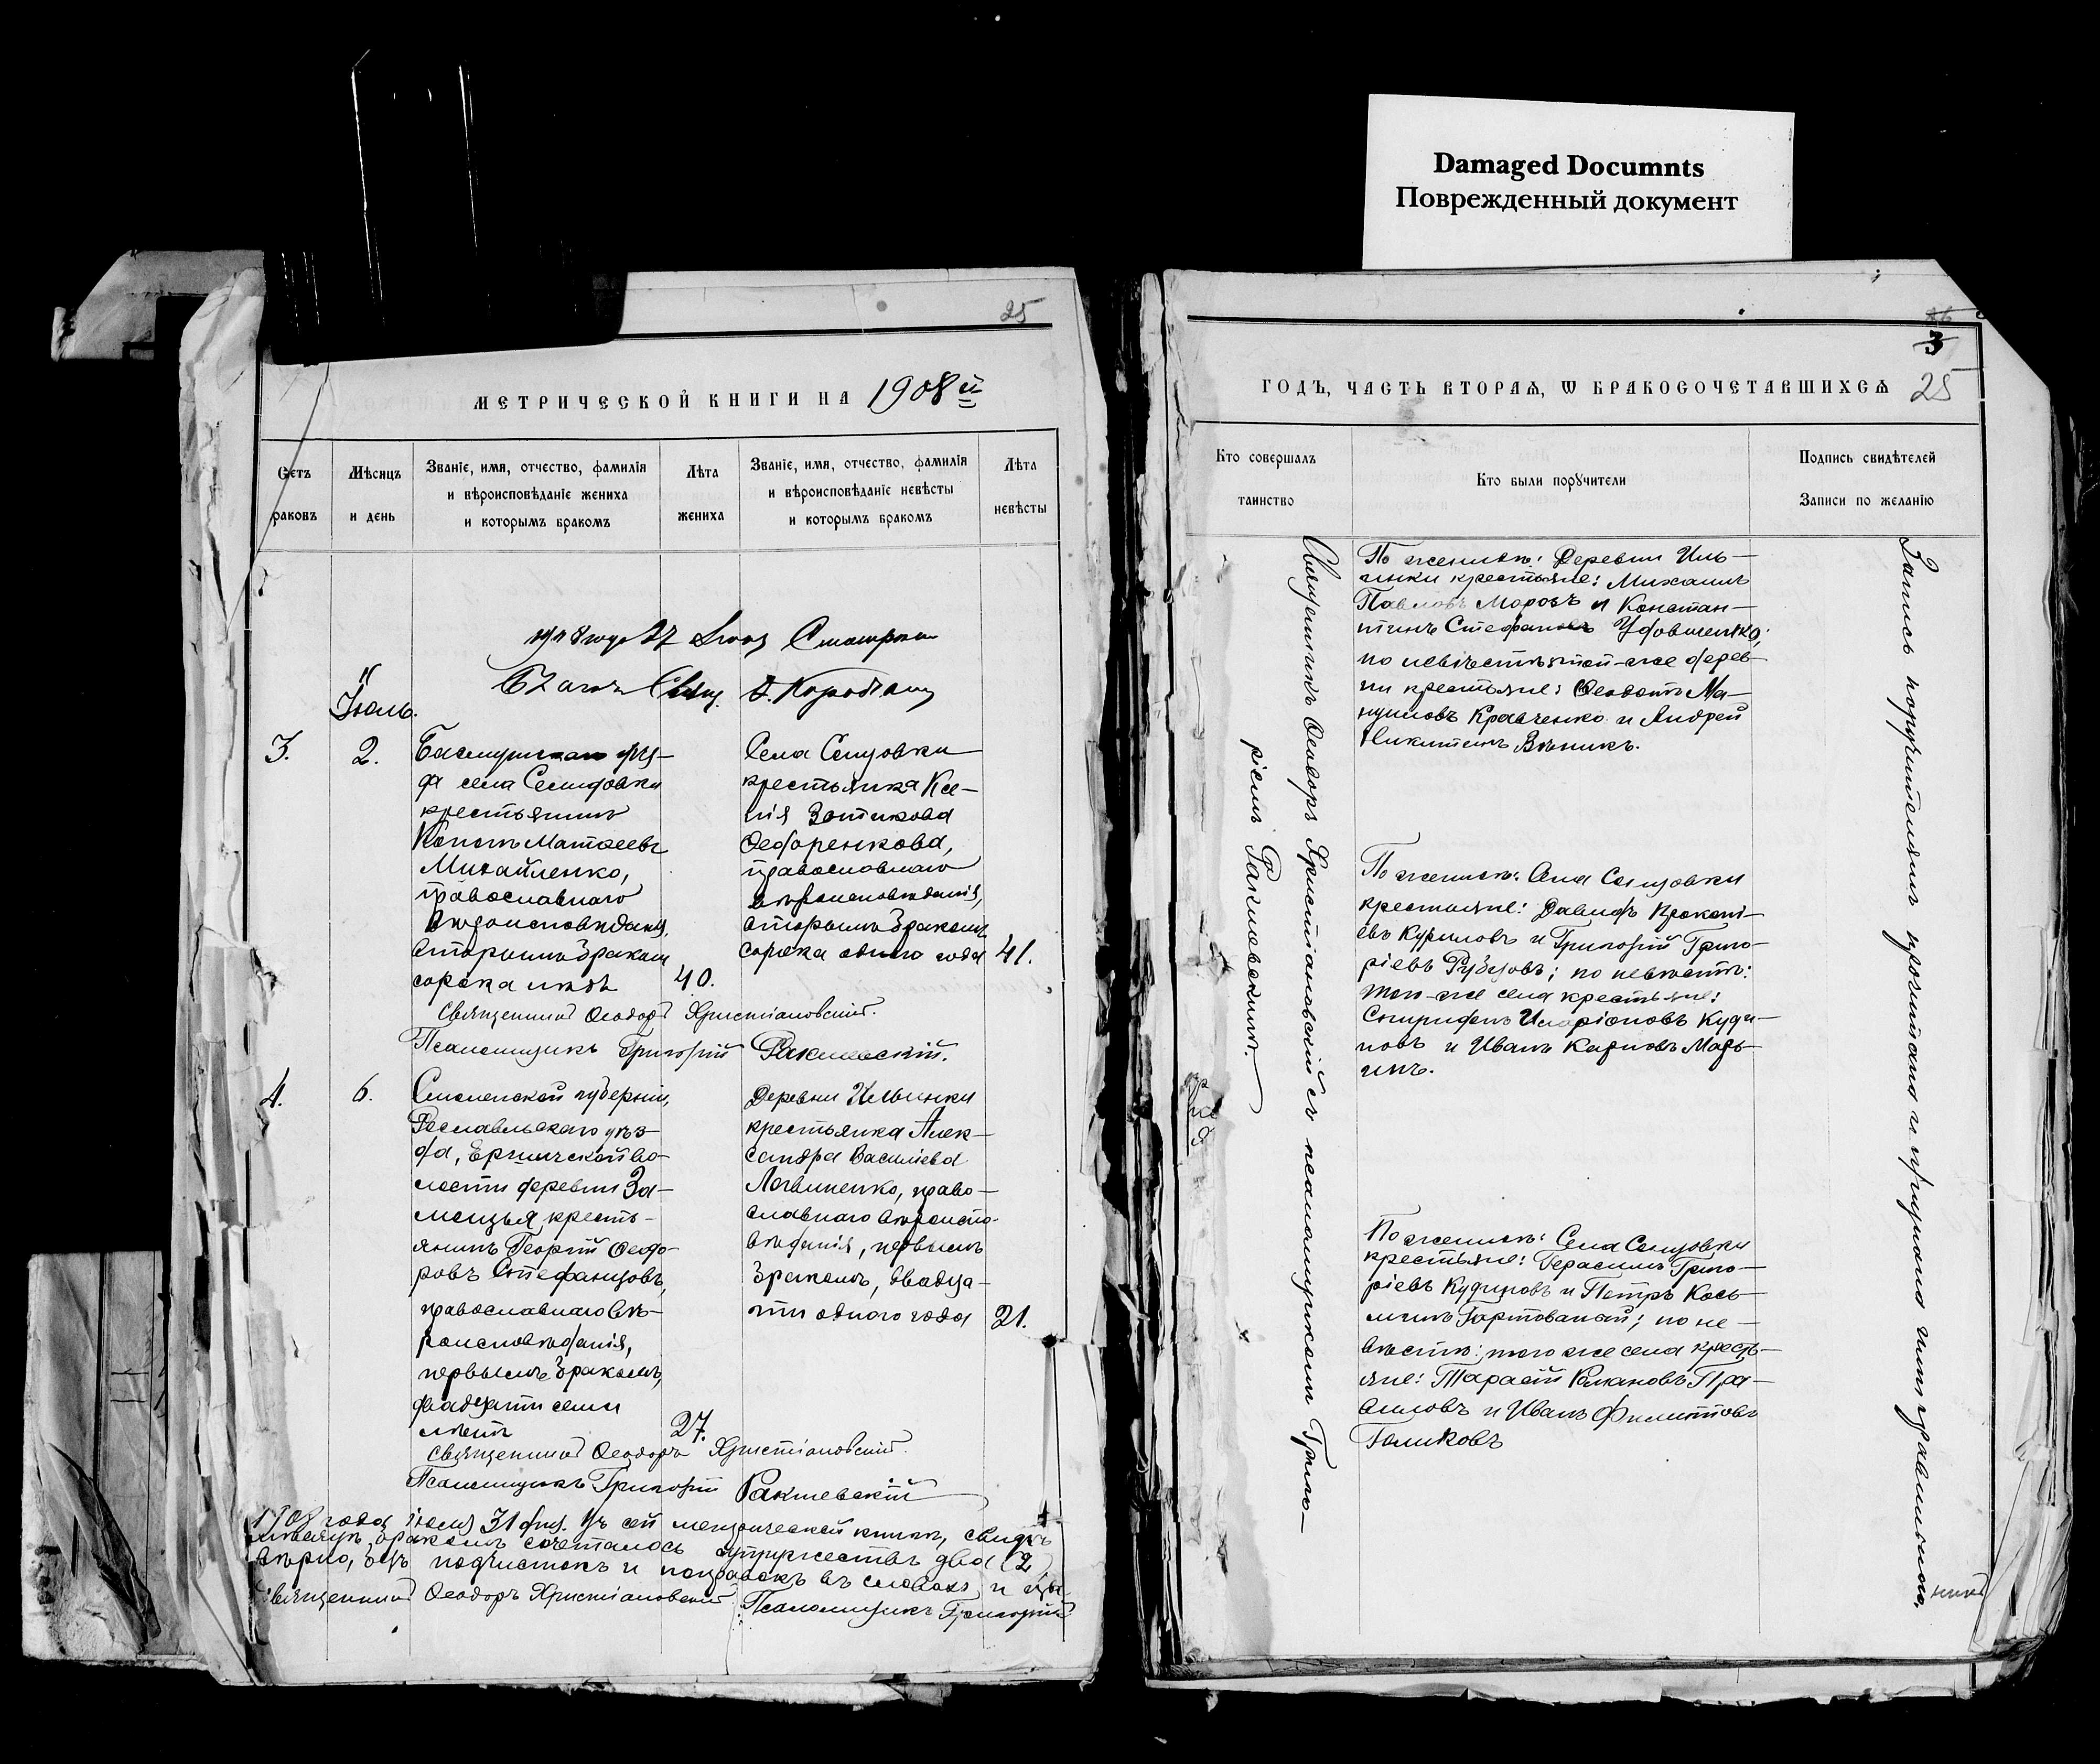 Damaged Documnts
Поврежденный документ
25
МЕТРИЧЕСКОЙ КНИГИ НА 1908й
Счетъ
раковъ
Мѣсяцъ
и день
Званіе, имя, отчество, фамилія
и вѣроисповѣданіе жениха
и которымъ бракомъ
Лѣта
жениха
Званіе, имя, отчество, фамилія
и вѣроисповѣданіе невѣсты
и которымъ бракомъ
Лѣта
невѣсты
Іюль.
3.
2.
села
крестьянинъ
Кононъ Матѳеевъ
Михайленко,
православнаго
вѣроисповѣданія,
вторымъ бракомъ
сорока лѣтъ
40.
Села
крестьянка Ксе-
нія Зотикова
Ѳедоренкова,
православнаго
вѣроисповѣданія,
вторымъ бракомъ
сорока одного года
41.
Священникъ Ѳеодоръ Христіановскій.
Псаломщикъ Григорій Ракшевскій.
4.
6.
Смоленской губерніи,
Рославльскаго уѣз-
да, Ершичской во-
лости деревни За-
мощья, кресть-
янинъ Георгій Ѳеодо-
ровъ Стефанцовъ,
православнаго вѣ-
роисповѣданія,
первымъ бракомъ,
двадцати семи
лѣтъ
27.
Деревни Ильинки
крестьянка Алек-
сандра Василіева
Логвиненко, право-
славнаго вѣроиспо-
вѣданія, первымъ
бракомъ, двадца-
ти одного года
21.
Священникъ Ѳеодоръ Христіановскій.
Псаломщикъ Григорій Ракшевскій
1908 года іюля 31 дня. Въ сей метрической книгѣ, свидѣ-
тельствуемъ, бракомъ сочеталось супружествъ два (2)
вѣрно, безъ подчистокъ и поправокъ въ словахъ и
Священникъ Ѳеодоръ Христіановскій Псаломщикъ Григорій
3
25
ГОДЪ, ЧАСТЬ ВТОРАѦ, Ѡ БРАКОСОЧЕТАВШИХСѦ
Кто совершалъ
таинство
Кто были порꙋчители
Подпись свидѣтелей
Записи по желанію
Священникъ Ѳеодоръ Христіановскій съ псаломщикомъ Григо-
ріемъ Ракшевскимъ.
По женихѣ: Деревни Иль-
инки крестьяне: Михаилъ
Павловъ Морозъ и Констан-
тинъ Стефановъ Удовиченко;
по невѣстѣ: той-же дерев-
ни крестьяне: Ѳеодотъ Ма-
нуиловъ Кравченко и Андрей
Никитинъ Вѣникъ.
По женихѣ: Села
крестьяне: Давидъ Прокопі-
евъ Куриловъ и Григорій Григо-
ріевъ Рубцовъ; по невѣстѣ:
того-же села крестьяне:
Спиридонъ Иларіоновъ Куди-
новъ и Иванъ Карповъ Марь-
инъ.
По женихѣ: Села
крестьяне: Герасимъ Григо-
ріевъ Кудиновъ и Петръ Кось-
минъ Гартованой; по не-
вѣстѣ: того же села кресть-
яне: Тарасій Романовъ Пра-
соловъ и Иванъ Филипповъ
Голиковъ
Запись поручителямъ прочитана и признана ими правильною.